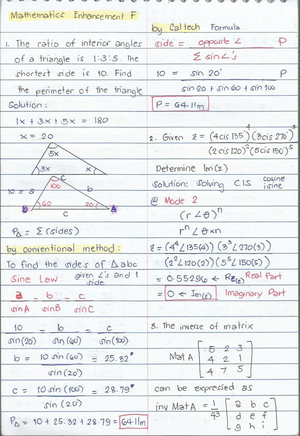 Mathematics Enhancement F
1. The ratio of interior angles
of a triangle is 1:3:5. The
shortest side is 10. Find
the perimeter of the triangle
Solution:
1x + 3x + 5x = 180
x = 20
5x
3x
x
C
100
10 = a
b
60
20
B
c
A
P△ = Σ (sides)
by conventional method:
To find the sides of △abc
Sine Law given ∠'s and 1 side
a = b = c
sinA sinB sinC
10 = b = c
sin(20) sin(60) sin(100)
b = 10 sin(60) = 25.32"
sin(20)
c = 10 sin(100) = 28.79"
sin(20)
P△ = 10 + 25.32 + 28.79 = 64.11m
by Caltech Formula
side = opposite ∠ P
Σ sin∠'s
10 = sin 20° P
sin20 + sin60 + sin100
P = 64.11m
2. Given z = (4cis135°)⁴(3cis270°)³
(2cis120°)²(5cis150°)⁵
Determine Im(z)
Solution: Solving CIS cosine isine
@ Mode 2
(r∠θ)ⁿ
rⁿ∠θxn
z = (4⁴∠135(4))(3³∠270(3))
(2²∠120(2))(5⁵∠150(5))
= 0.55296 ← Re(z) Real Part
= 0 ← Im(z) Imaginary Part
3. The inverse of matrix
Mat A
5 2 3
4 2 1
4 7 5
can be expressed as
inv MatA = 1/43
a b c
d e f
g h i